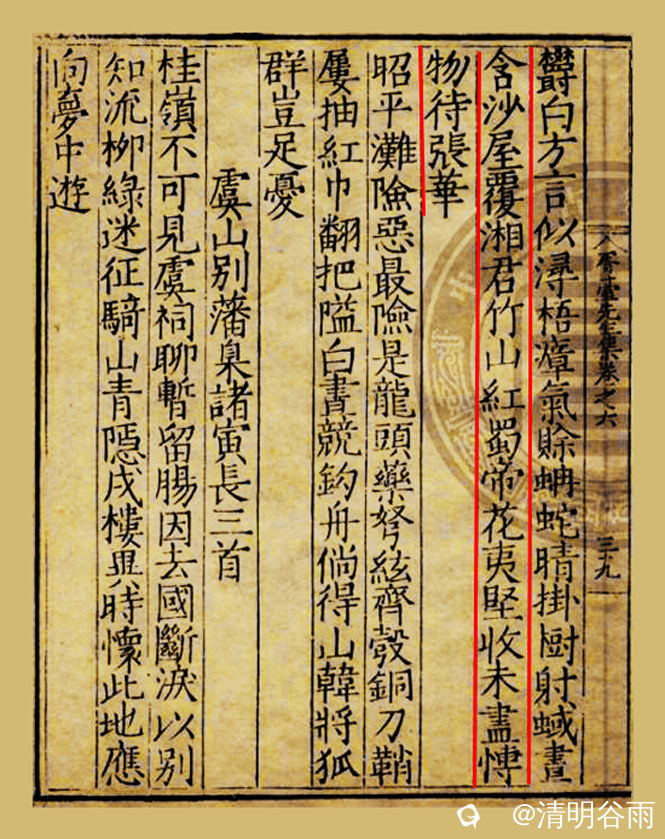 先生集卷之六
三十九
欝白方言似潯梧瘴氣賖蚺蛇晴掛樹射蜮晝
含沙屋覆湘君竹山紅蜀帝花夷堅收未盡愽
物待張華
昭平灘險惡最險是龍頭藥弩絃齊彀銅刀鞘
屢抽紅巾翻把隘白晝競鈎舟倘得山韓將狐
群豈足憂
虞山别藩臬諸寅長三首
桂嶺不可見虞祠聊暫留腸因去國斷淚以别
知流柳綠迷征騎山青隱戍樓異時懷此地應
向夢中遊
@清明谷雨